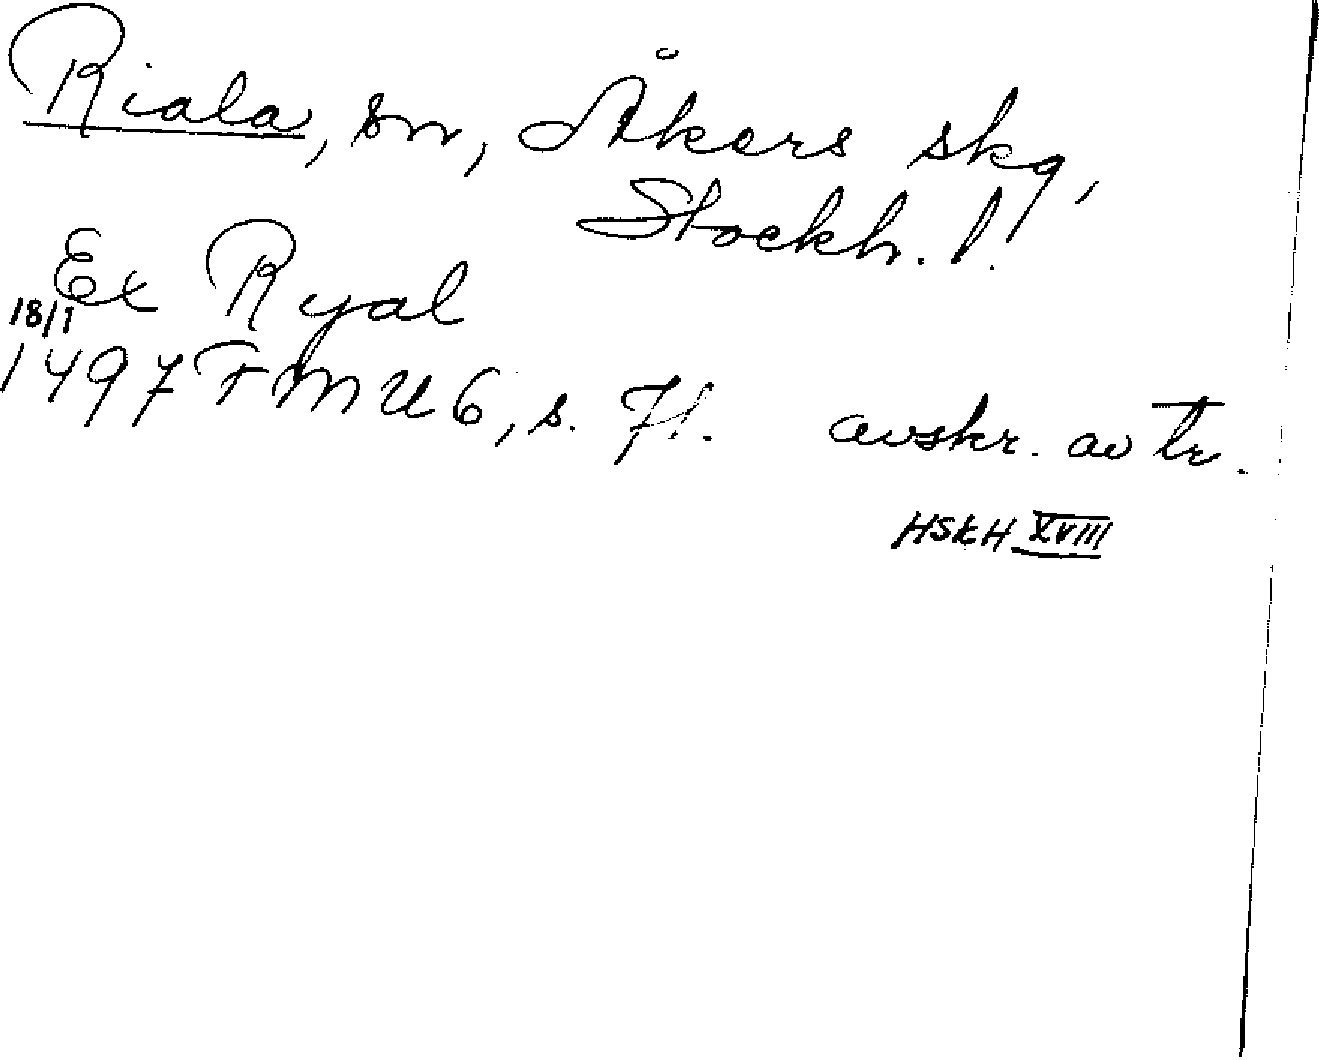 Riala, sn, Åkers skg,
Stockh. l.
Ex Ryal
18/1
1497 FMU 6, s. 71. avskr. av tr.
HSkH XVIII